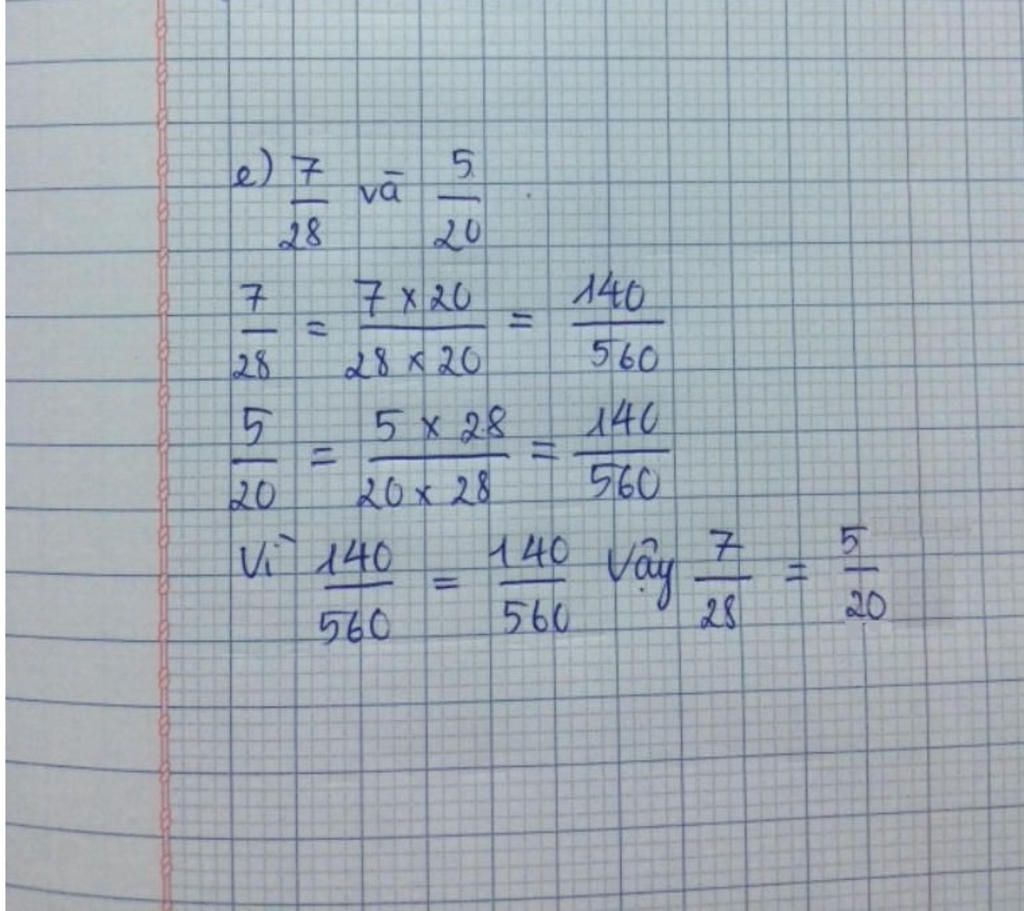 e) 7/28 và 5/20
7/28 = 7 × 20 / 28 × 20 = 140/560
5/20 = 5 × 28 / 20 × 28 = 140/560
Vì 140/560 = 140/560 Vậy 7/28 = 5/20